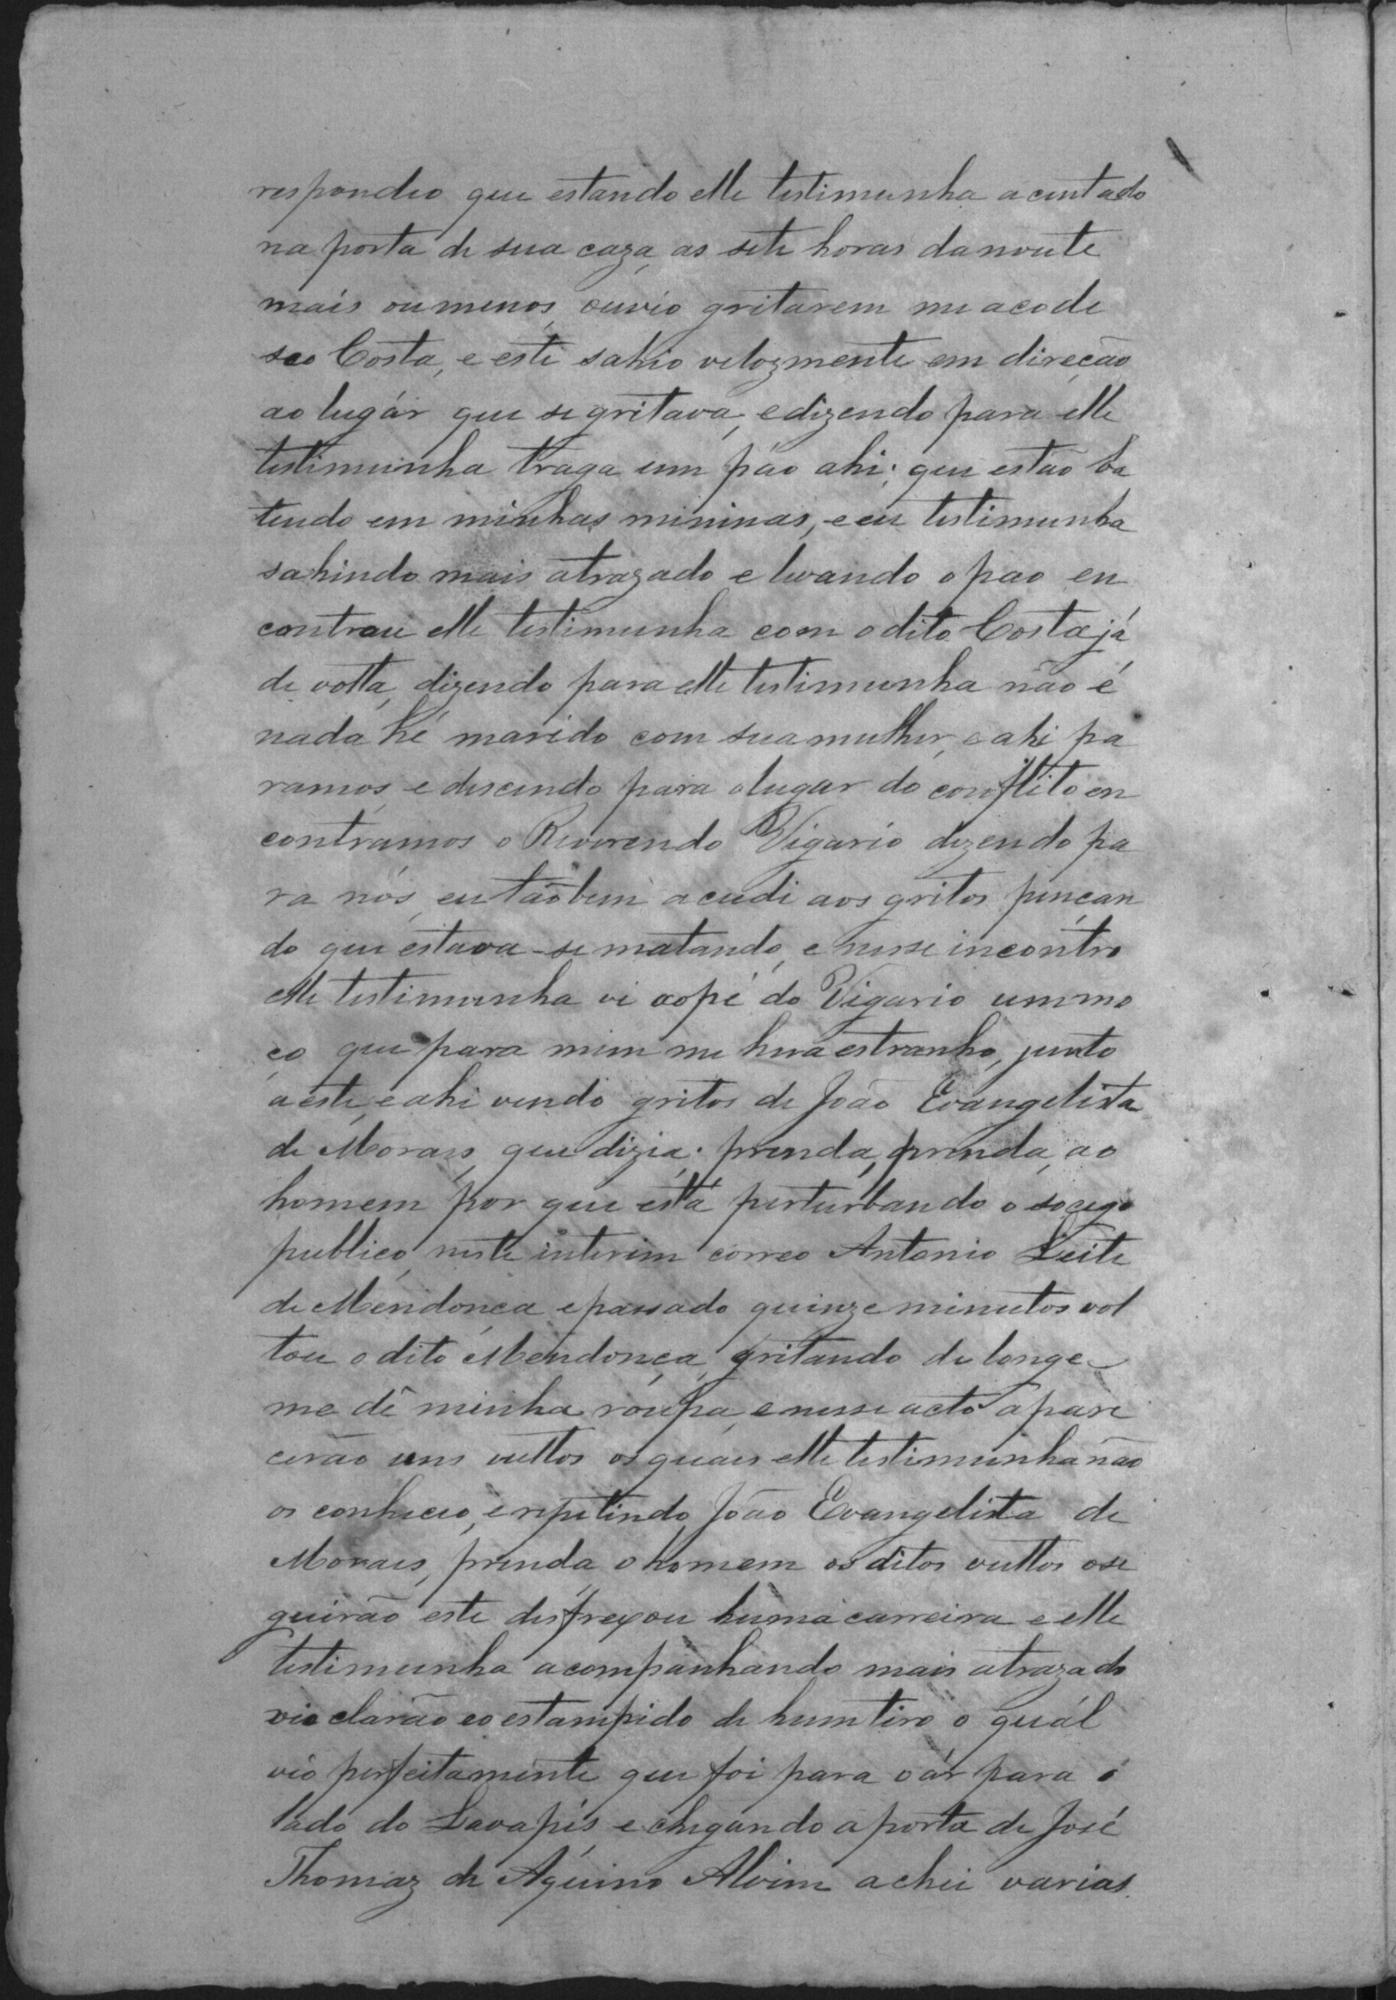 respondeo que estando elle testimunha acentado
na porta de sua caza as sete horas da noute
mais ou menos, ouvio gritarem me acode
seo Costa, e este sahio velozmente em direção
ao lugár que se gritava, e dizendo para elle
testimunha traga um páo ahi; que estão ba
tendo em minhas mininas, e eu testimunha
sahindo mais atrazado e levando o pao en
controu elle testimunha com o dito Costa já
de volta, dizendo para elle testimunha não é
nada hé marido com sua mulher, e ahi pa
ramos e descendo para o lugar do conflito en
contramos o Reverendo Vigario dizendo pa
ra nós, eu tãobem acudi aos gritos pençan
do que estava-se matando, e nesse incontro
elle testimunha vi ao pé do Vigario um mo
ço que para mim me hera estranho, junto
a este, e ahi vendo gritos de João Evangelista
de Morais, que dizia; prenda, prenda, ao
homem por que está perturbando o socego
publico, neste interim correo Antonio Leite
de Mendonça e passado quinze minutos vol
tou o dito Mendonça, gritando de longe
me dê minha roupa, e nesse acto apare
cerão uns vultos os quais elle testimunha não
os conheceo, e repetindo João Evangelista de
Morais, prenda o homem os ditos vultos o se
guirão este desfrexou huma carreira e elle
testimunha acompanhando mais atrazado
vio clarão e o estampido de hum tiro o quál
vio perfeitamente que foi para o ár para o
lado do Lavapés e chegando a porta de José
Thomaz de Aquino Alvim achei varias